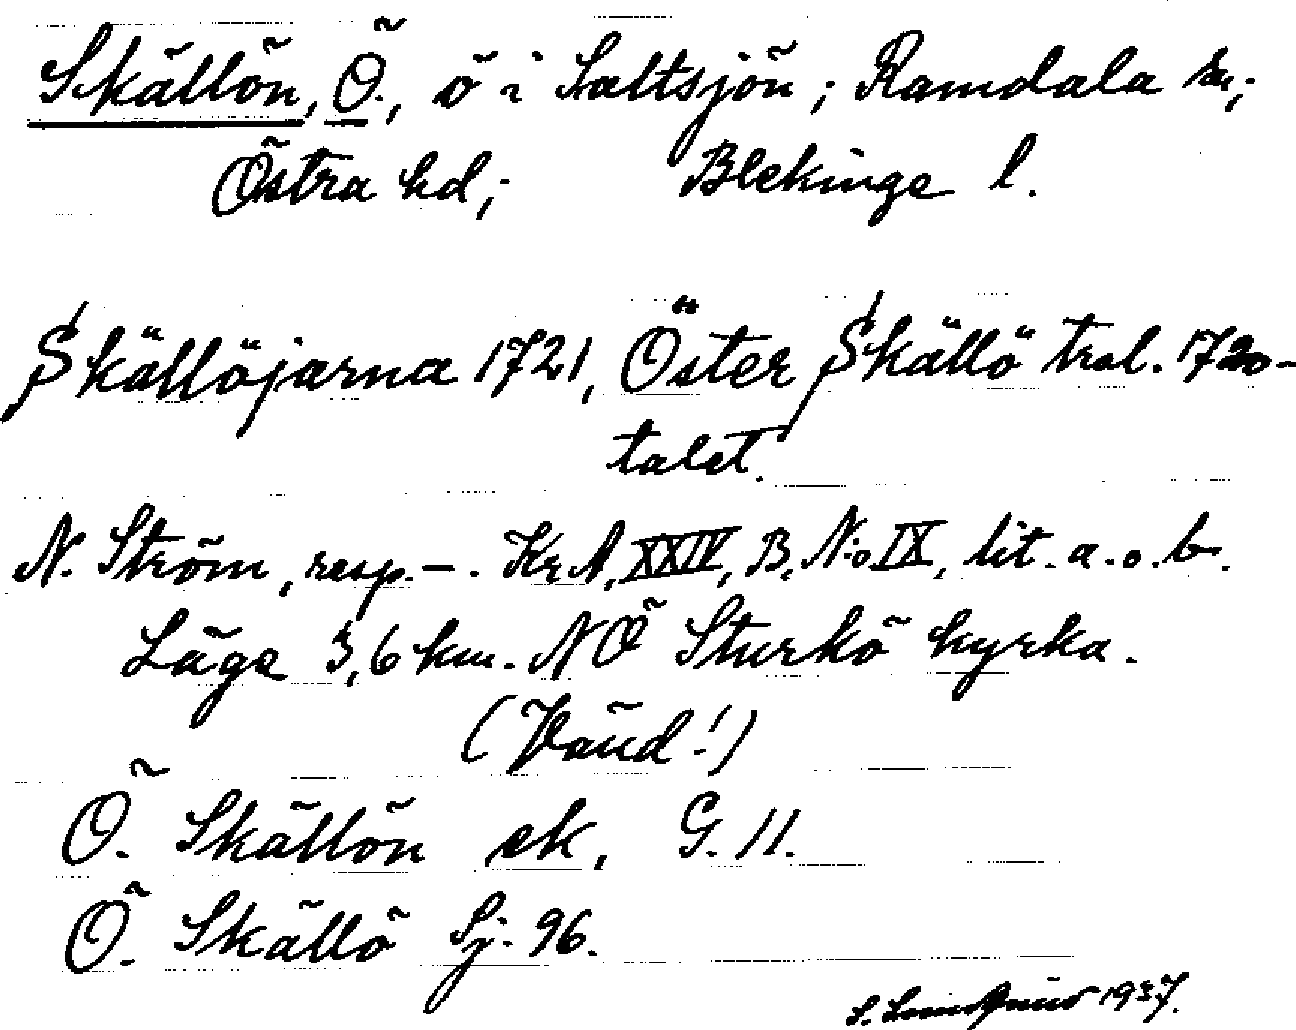 Skällön, Ö., ö i Saltsjön; Ramdala sn;
Östra hd; Blekinge l.
Skällöjarna 1721, Öster Skällö trol. 1720-
talet.
N. Ström, resp. – . KrA, XXIV, B, N:o IX, lit. a. o. b.
Läge 3,6 km. NÖ Sturkö kyrka.
(Vänd!)
Ö. Skällön ek, G. 11.
Ö. Skällö Sj. 96.
S. 1937.